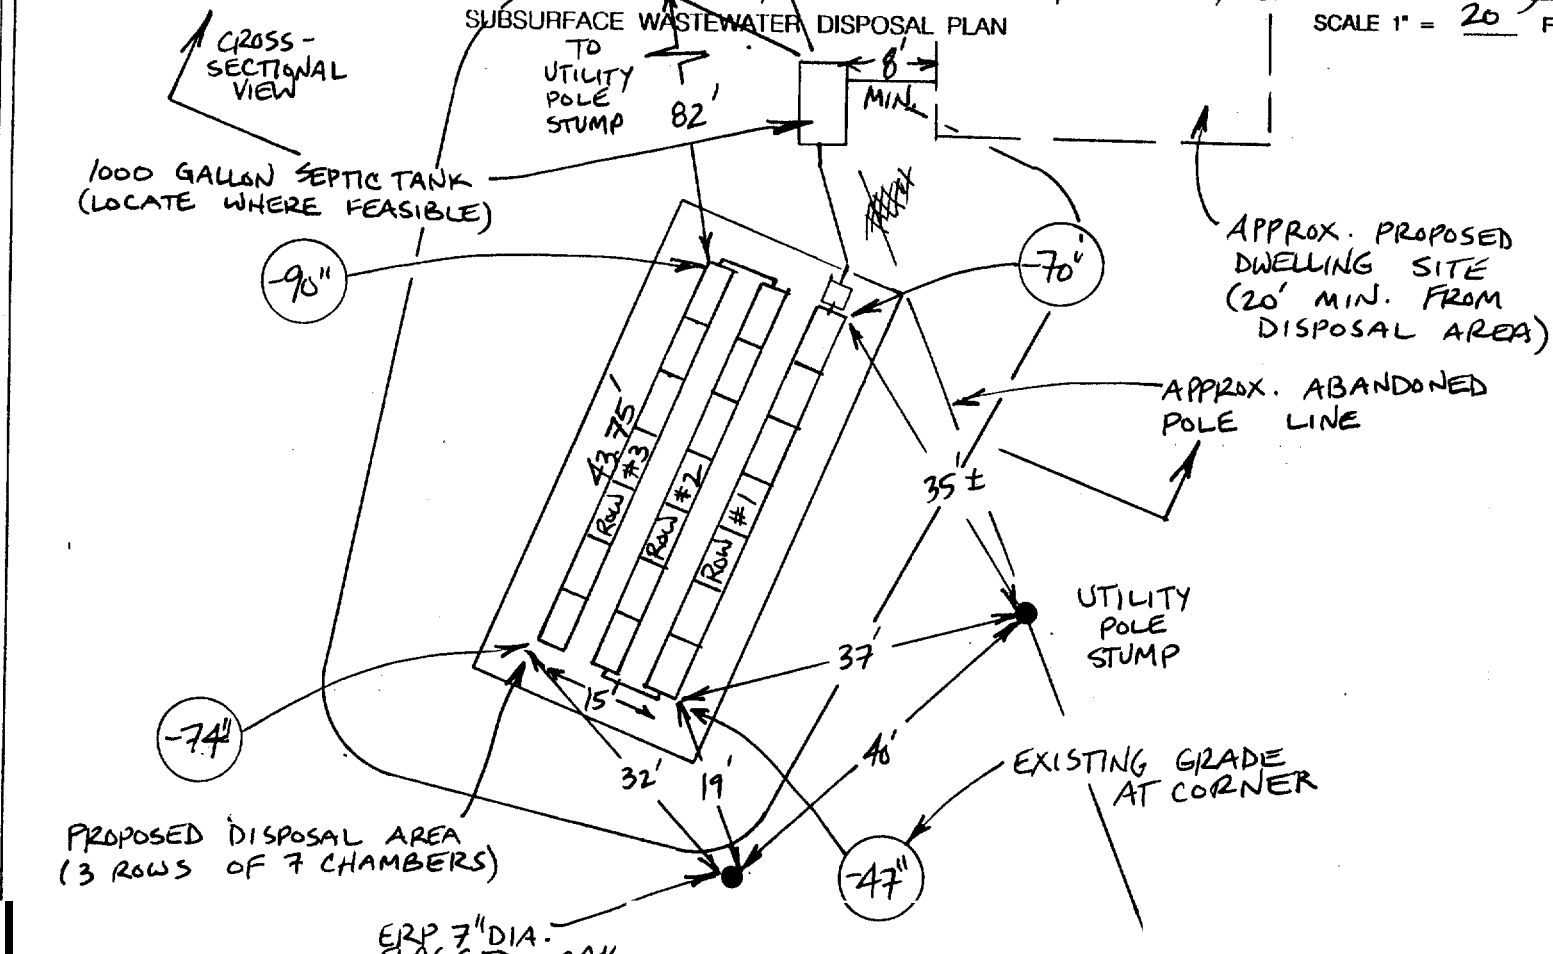 SUBSURFACE WASTEWATER DISPOSAL PLAN
SCALE 1" = 20 F
CROSS-
SECTIONAL
VIEW
TO
UTILITY
POLE
STUMP
82'
8'
MIN.
1000 GALLON SEPTIC TANK
(LOCATE WHERE FEASIBLE)
-90"
-70"
APPROX. PROPOSED
DWELLING SITE
(20' MIN. FROM
DISPOSAL AREA)
APPROX. ABANDONED
POLE LINE
43.75'
ROW #3
ROW #2
ROW #1
35'±
UTILITY
POLE
STUMP
37'
15'
-74"
32'
19'
40'
EXISTING GRADE
AT CORNER
PROPOSED DISPOSAL AREA
(3 ROWS OF 7 CHAMBERS)
-47"
ERP 7" DIA.